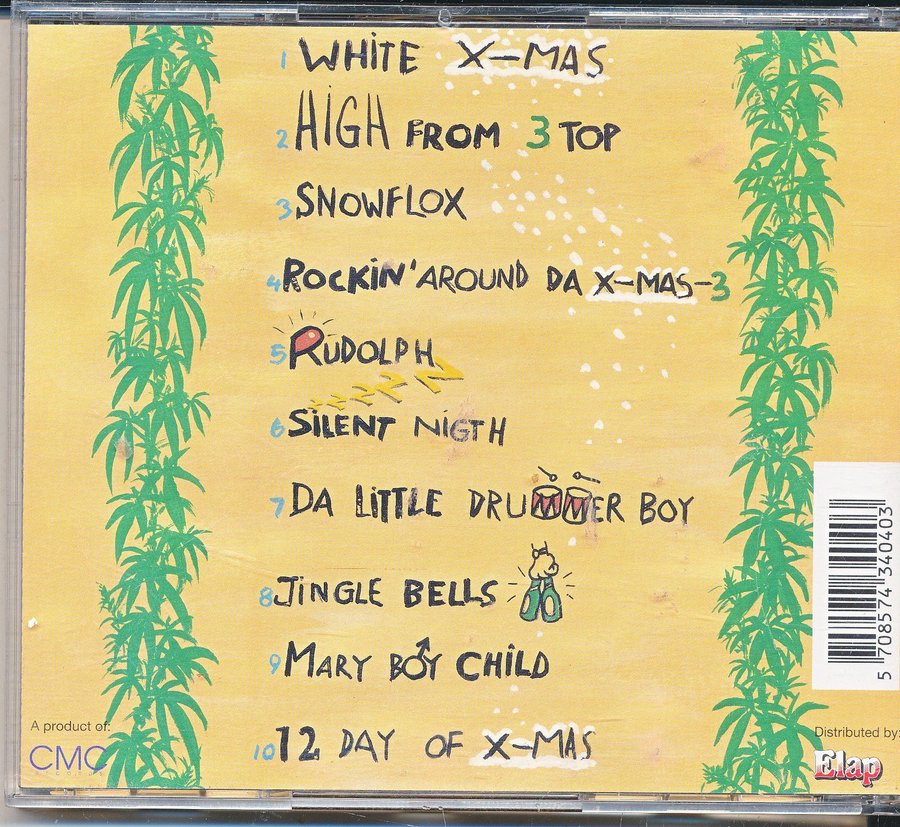 1 WHITE X-MAS
2 HIGH FROM 3 TOP
3 SNOWFLOX
4 ROCKIN' AROUND DA X-MAS-3
5 RUDOLPH
6 SILENT NIGTH
7 DA LITTLE DRUMMER BOY
8 JINGLE BELLS
9 MARY BOY CHILD
10 12 DAY OF X-MAS
A product of:
CMC
Distributed by:
Elap
5 708574 340403